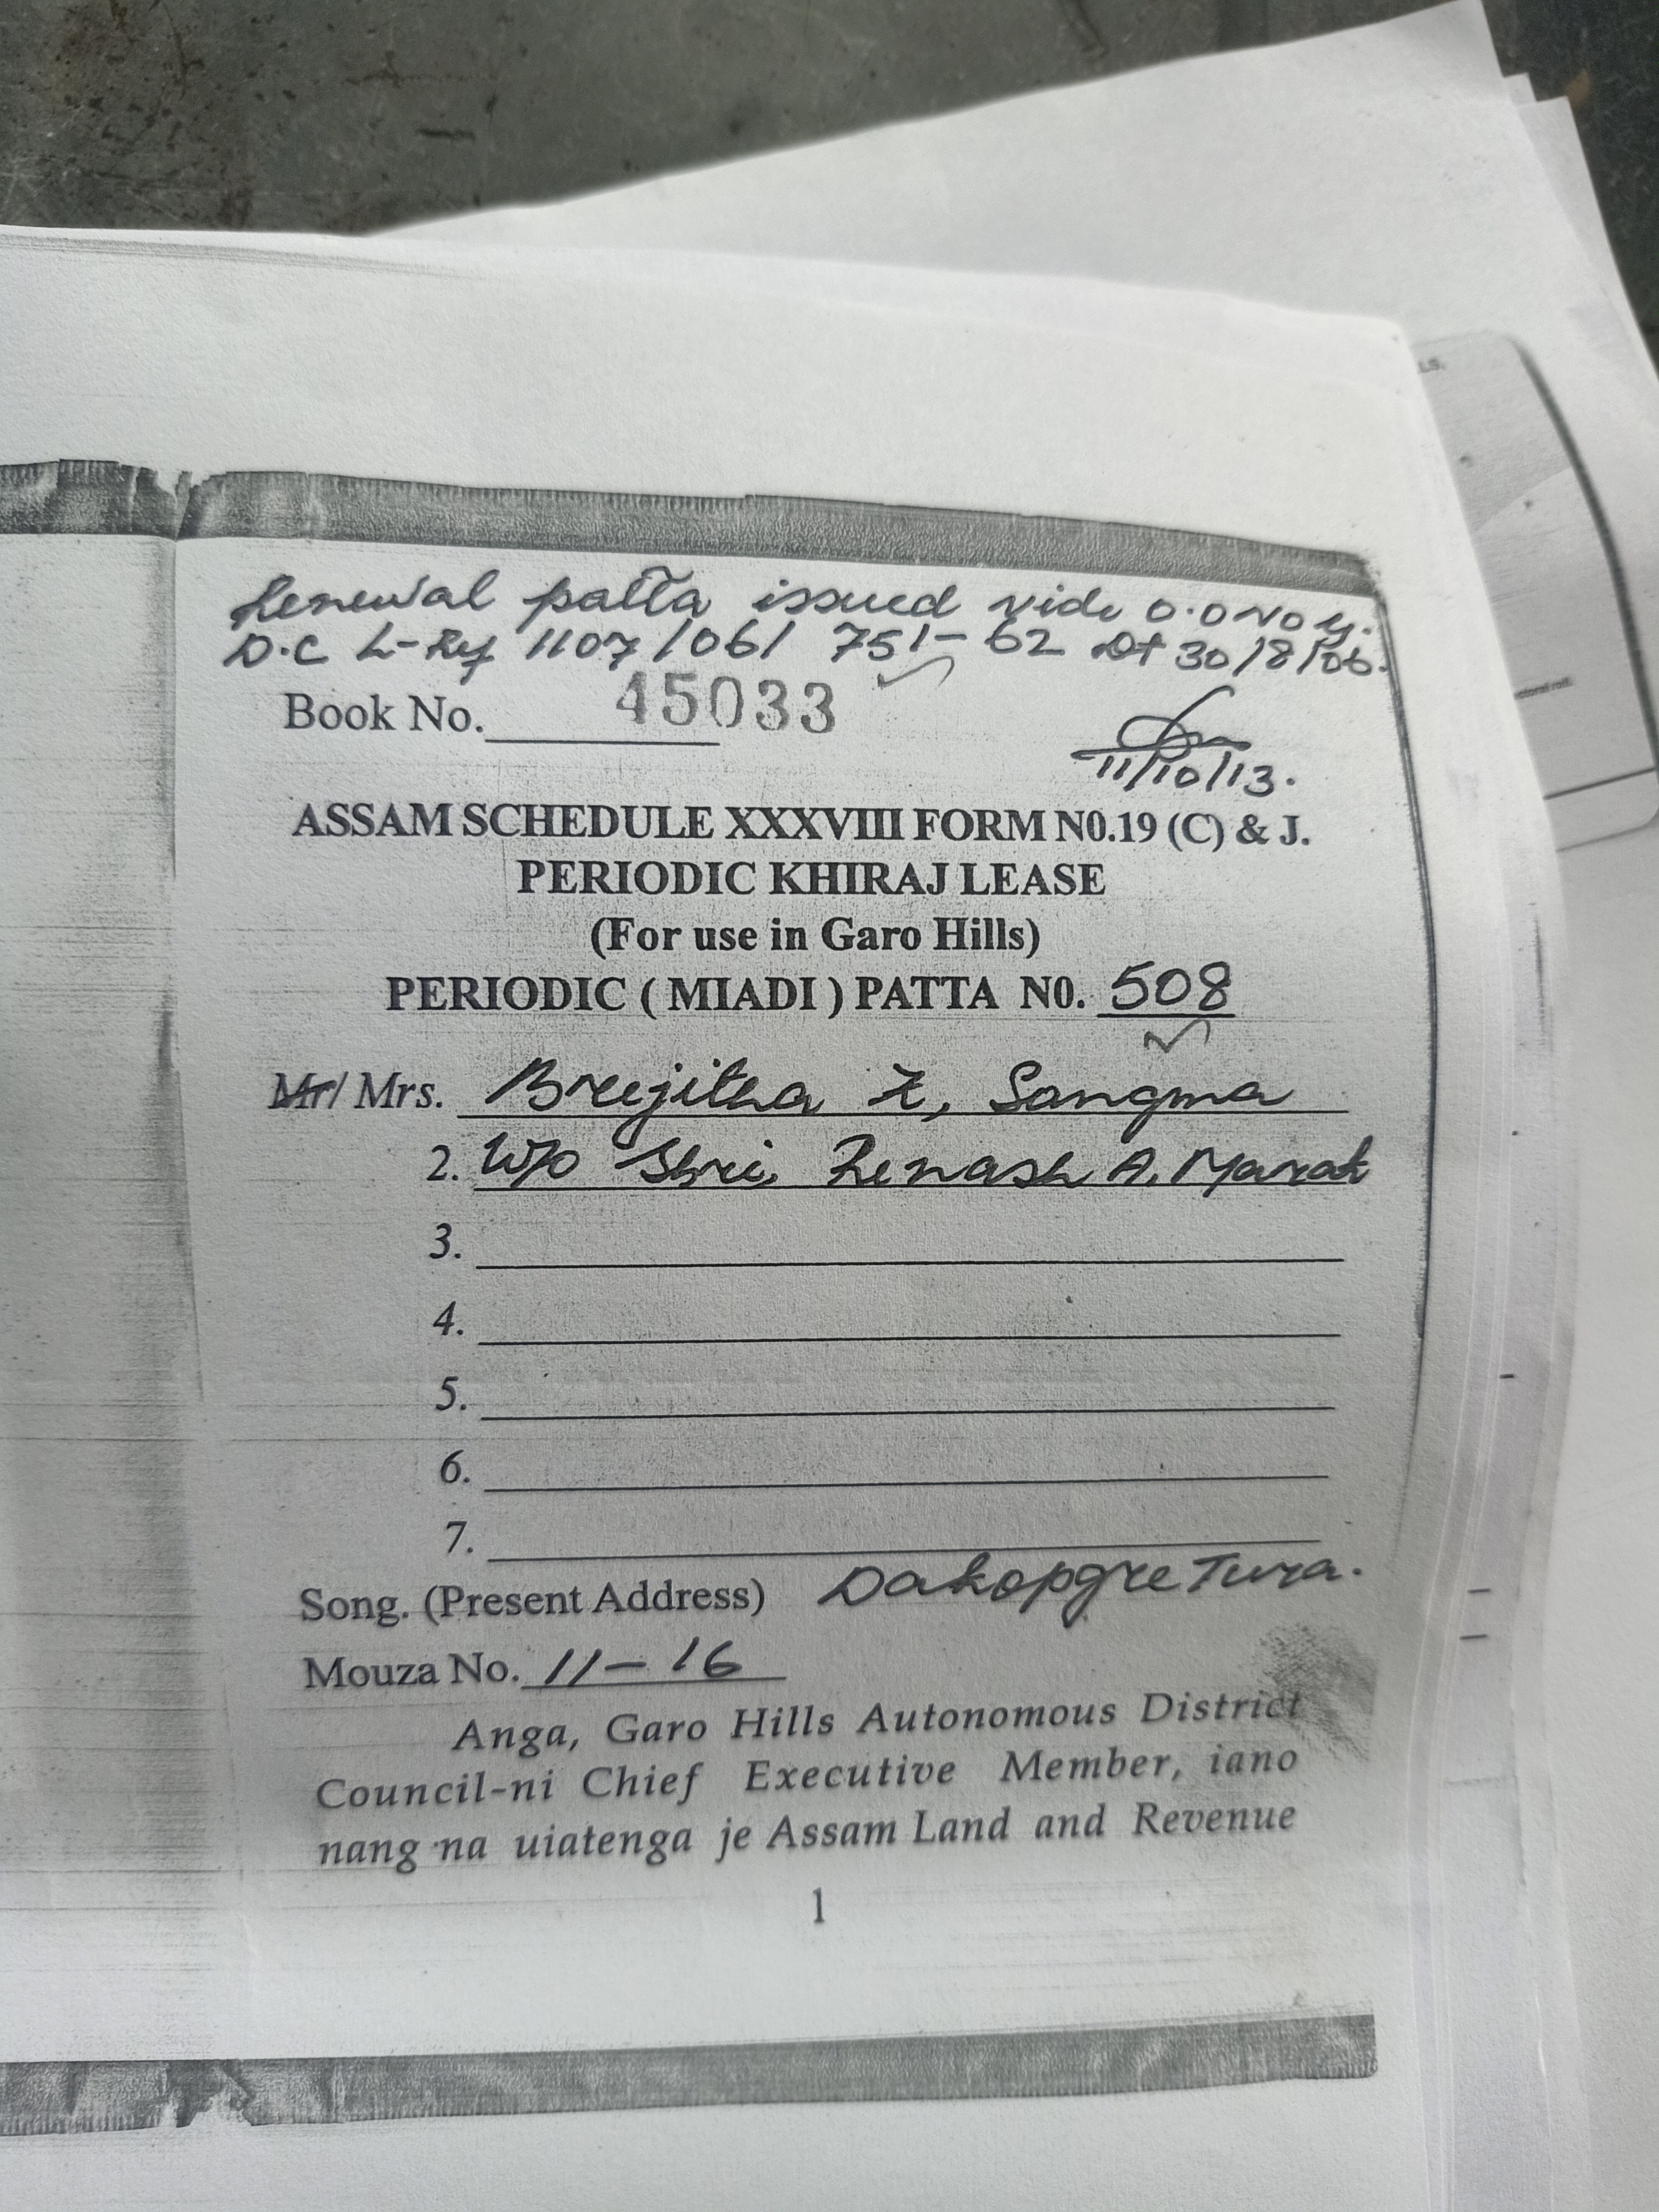 Renewal patta issued vide O.O No G.
D.C L-Rev 1107/06/ 751-62 Dt 30/8/06.
Book No. 45033
11/10/13.
ASSAM SCHEDULE XXXVIII FORM N0.19 (C) & J.
PERIODIC KHIRAJ LEASE
(For use in Garo Hills)
PERIODIC ( MIADI ) PATTA N0. 508
Mr/ Mrs. Brejitha Z, Sangma
2. W/o Shri, Renash A. Marak
3.
4.
5.
6.
7.
Song. (Present Address) Dakopgre Tura.
Mouza No. 11-16
Anga, Garo Hills Autonomous District
Council-ni Chief Executive Member, iano
nang na uiatenga je Assam Land and Revenue
1